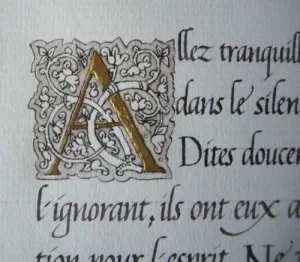 Allez tranquill
dans le silen
Dites doucem
l'ignorant, ils ont eux a
tion pour l'esprit. Ne